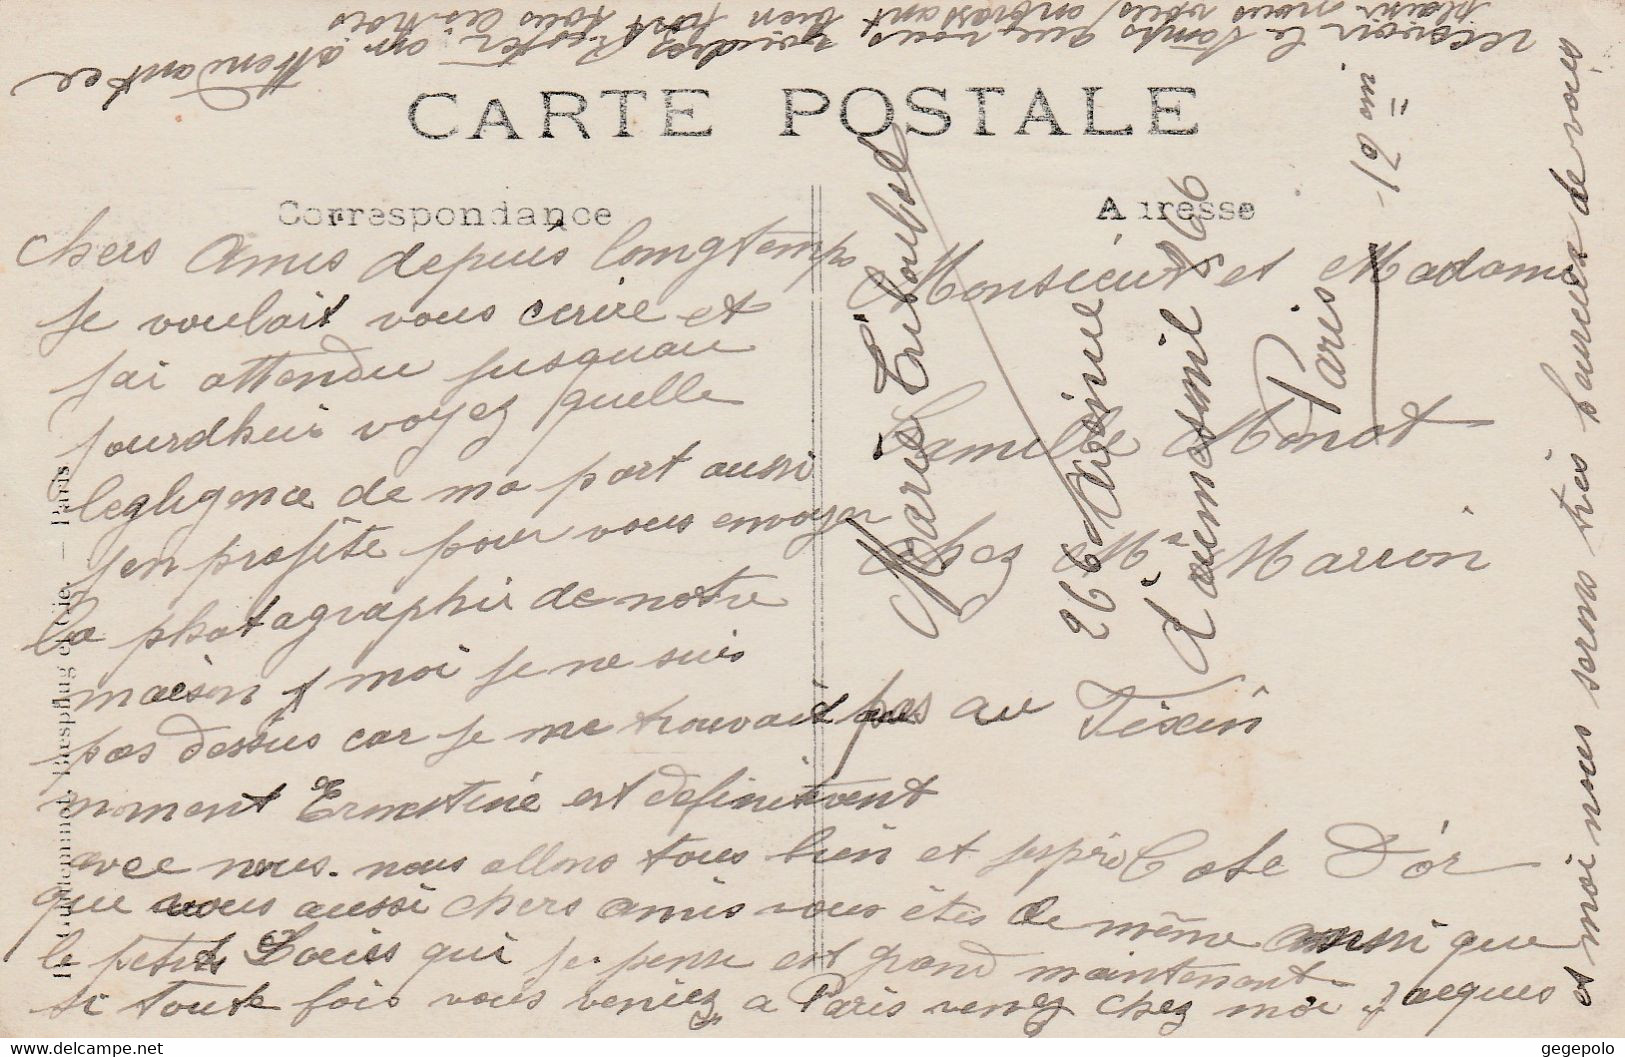 CARTE POSTALE
Correspondance
Adresse
chers amis depuis longtemps
je voulait vous ecrire et
jai attendu jusquau
jourdhui voyez quelle
legligence de ma part aussi
jen profite pour vous envoyer
la photagraphie de notre
maison moi je ne suis
pas dessus car je me trouvait pas au
moment Ernestine est definitvent
avec nous. nous allons tous bien et jespre
que vous aussi chers amis vous êtes de même aussi que
le petit Louis qui je pense est grand maintenant
si toute fois vous veniez a Paris venez chez moi Jacques
et moi nous serons très heureux de vous
recevoir le temps que vous voudrez rester en attendant ce
plaisir nous vous embrassant bien fort tous les trois
Monsieur et Madame
Camille Monot
Chez Mr Marron
Fixin
Cote D'or
Marie
26 Avenue
d'aumesnil 266
Paris
Paris
gegepolo